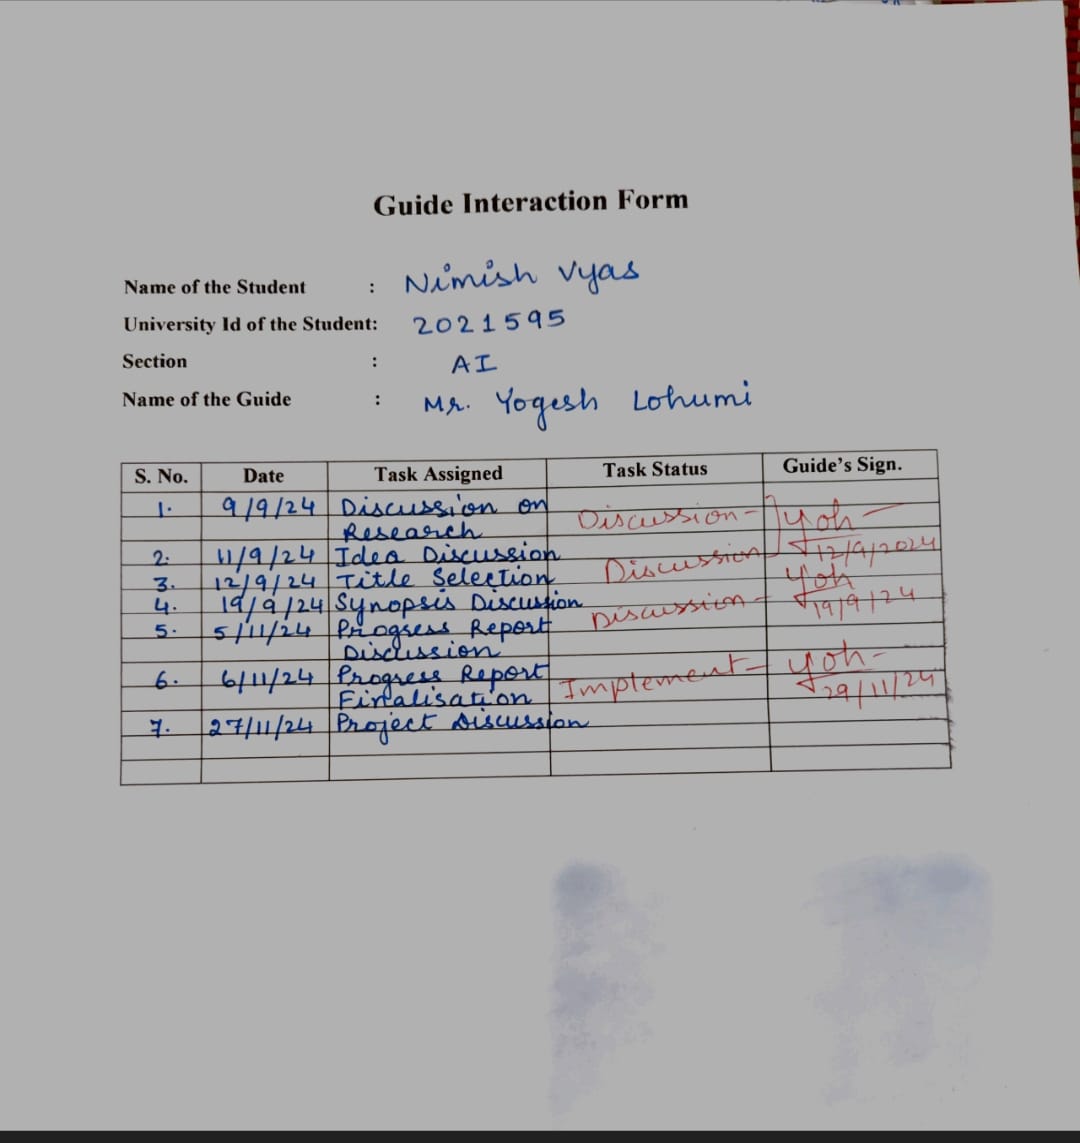 Guide Interaction Form
Name of the Student : Nimish Vyas
University Id of the Student: 2021595
Section : AI
Name of the Guide : Mr. Yogesh Lohumi
S. No. Date Task Assigned Task Status Guide's Sign.
1. 9/9/24 Discussion on Discussion-
Research
2. 11/9/24 Idea Discussion Discussion 12/9/2024
3. 12/9/24 Title Selection
4. 19/9/24 Synopsis Discussion Discussion- 19/9/24
5. 5/11/24 Progress Report
Discussion
6. 6/11/24 Progress Report Implement-
Finalisation 29/11/24
7. 27/11/24 Project Discussion